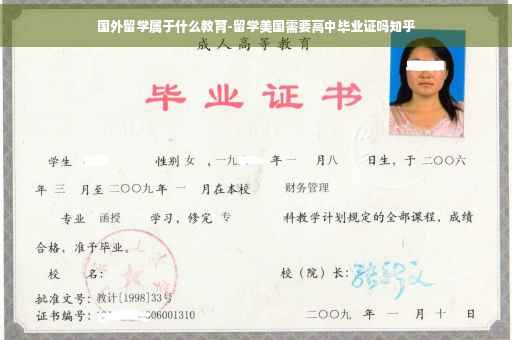 国外留学属于什么教育-留学美国需要高中毕业证吗知乎
成人高等教育
毕业证书
学生 性别 女 ,一九 年一 月八 日生,于二〇〇六
年 三 月至二〇〇九年 一 月在本校 财务管理
专业 函授 学习,修完 专 科教学计划规定的全部课程,成绩
合格,准予毕业。
校 名: 校(院)长:
批准文号:教计[1998]33号
证书编号: 06001310 二〇〇九 年 一 月 十 日